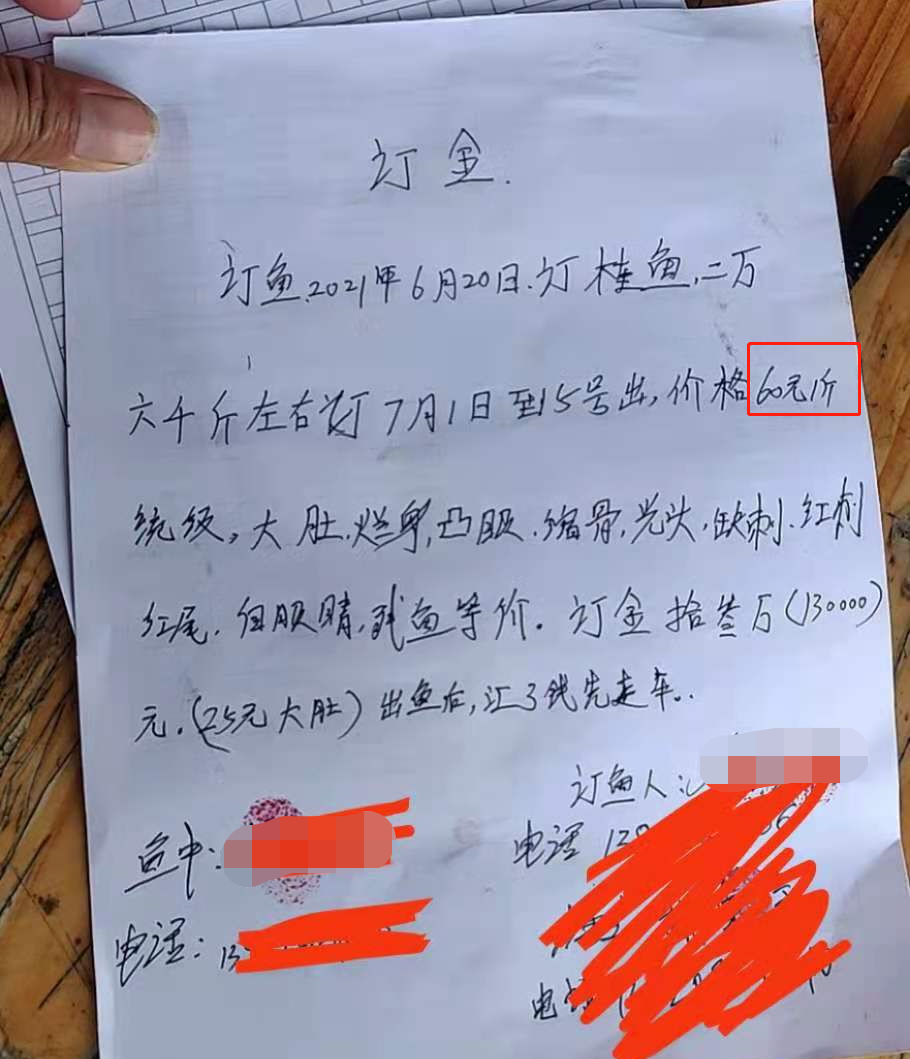 订金.
订鱼.2021年6月20日.订桂鱼,二万
六千斤左右 订7月1日至15号出,价格60元1斤
统级。大肚.烂身,凸眼.缩骨,光头,缺刺.红刺
红尾.白眼睛,残鱼等价.订金拾叁万(130000)
元.(25元大肚)出鱼后,汇了钱先走车..
订鱼人:
鱼中:
电话 13
电话:13
电话